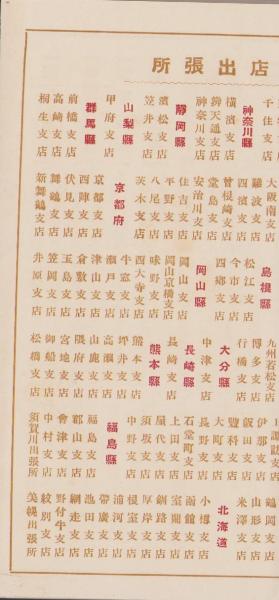 店出張所
千住支店
神奈川縣
横濱支店
辨天通支店
神奈川支店
靜岡縣
濱松支店
笠井支店
山梨縣
甲府支店
群馬縣
前橋支店
高崎支店
桐生支店
大阪南支店
難波支店
四濱支店
曾根崎支店
堂島支店
安治川支店
住吉支店
平野支店
八尾支店
茨木支店
京都府
京都支店
西陣支店
伏見支店
舞鶴支店
新舞鶴支店
島根縣
松江支店
今市支店
四鄕支店
岡山縣
岡山支店
岡山京橋支店
味野支店
西大寺支店
牛窓支店
瀨戸支店
津山支店
倉敷支店
玉島支店
笠岡支店
井原支店
九州若松支店
博多支店
行橋支店
大分縣
中津支店
長崎縣
長崎支店
熊本縣
熊本支店
坪井支店
高瀨支店
山鹿支店
隈府支店
宮地支店
御船支店
松橋支店
上諏訪支店
伊那支店
飯田支店
豐科支店
大町支店
長野支店
石堂町支店
上田支店
屋代支店
須坂支店
中野支店
福島縣
福島支店
郡山支店
會津支店
中村支店
須賀川出張所
鶴岡支店
山形支店
米澤支店
北海道
小樽支店
函館支店
室蘭支店
釧路支店
厚岸支店
根室支店
浦河支店
帶廣支店
池田支店
網走支店
野付牛支店
紋別支店
美幌出張所